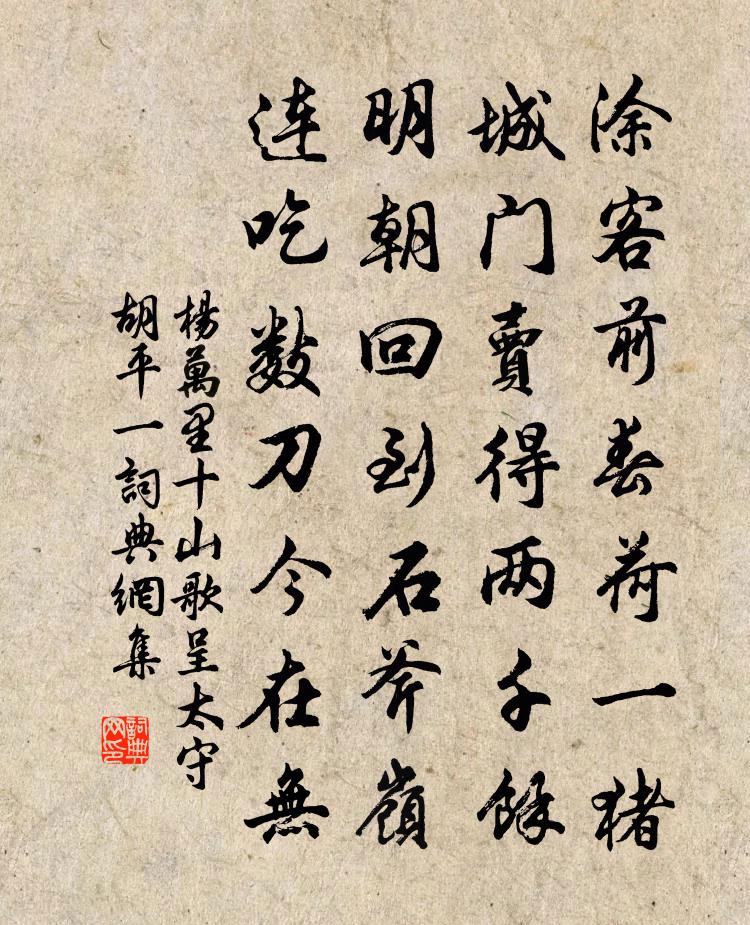 涂客前春荷一猪
城门賣得两千餘
明朝回到石斧嶺
连吃数刀今在無
楊萬里十山歌呈太守
胡平一詞典網集
詞典
网印